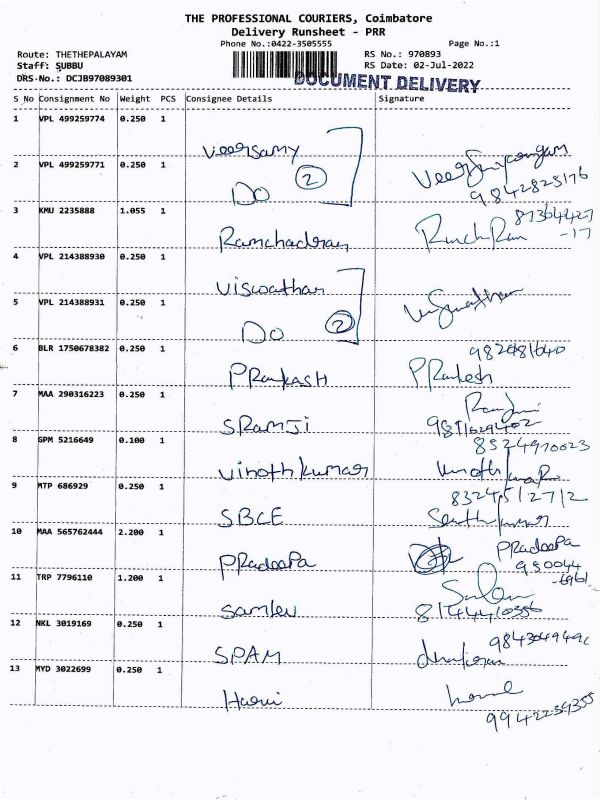 THE PROFESSIONAL COURIERS, Coimbatore
Delivery Runsheet - PRR
Phone No.:0422-3505555
Page No.:1
Route: THETHEPALAYAM
RS No.: 970893
Staff: SUBBU
RS Date: 02-Jul-2022
DRS No.: DCJB97089301
DOCUMENT DELIVERY
S No Consignment No Weight PCS Consignee Details Signature
1 VPL 499259774 0.250 1
Veersamy
2 VPL 499259771 0.250 1
Do 2
9842825176
3 KMU 2235888 1.055 1
Ramchadran
4 VPL 214388930 0.250 1
Viswathan
5 VPL 214388931 0.250 1
Do 2
6 BLR 1750678382 0.250 1
PRakash
7 MAA 290316223 0.250 1
SRamJi
8 GPM 5216649 0.100 1
8524970023
Vinoth kumar
9 MTP 686929 0.250 1
SBCE
10 MAA 565762444 2.200 1
PRadeepa PRadeepa
11 TRP 7796110 1.200 1
Samlev
12 NKL 3019169 0.250 1
SPAM
13 MYD 3022699 0.250 1
Harni